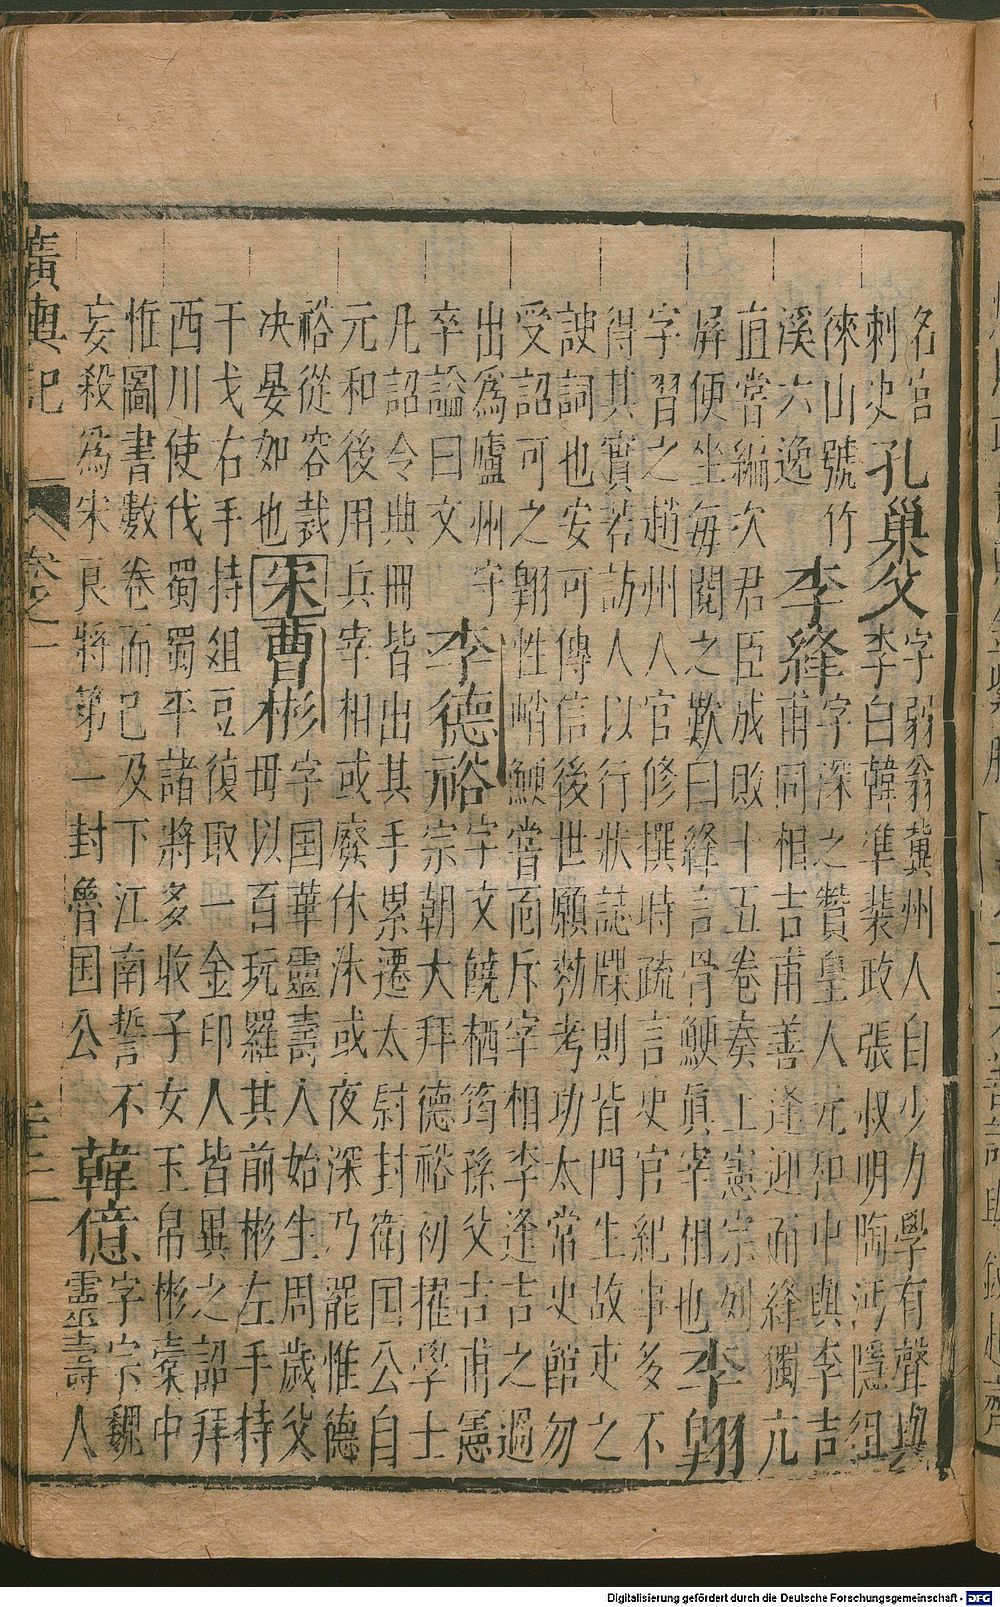 名宦
刺史
孔巢父
字弱翁冀州人自少力學有聲與
李白韓準裴政張叔明陶沔隱徂
徠山號竹
溪六逸
李絳
字深之贊皇人元和中與李吉
甫同相吉甫善逢迎而絳獨亢
直嘗編次君臣成敗十五卷奏上憲宗列
屏便坐每閱之歎曰絳言骨鯁真宰相也
李翱
字習之趙州人官修撰時疏言史官紀事多不
得其實若訪人以行狀誌牒則皆門生故吏之
諛詞也安可傳信後世願勑考功太常史館勿
受詔可之翱性峭鯁嘗面斥宰相李逢吉之過
出為廬州守
卒謚曰文
李德裕
字文饒栖筠孫父吉甫憲
宗朝大拜德裕初擢學士
凡詔令典冊皆出其手累遷太尉封衛国公自
元和後用兵宰相或廢休沐或夜深乃罷惟德
裕從容裁
決晏如也
宋
曹彬
字国華靈壽人始生周歲父
母以百玩羅其前彬左手持
干戈右手持俎豆復取一金印人皆異之詔拜
西川使伐蜀蜀平諸將多收子女玉帛彬橐中
惟圖書數卷而已及下江南誓不
妄殺為宋良將第一封魯国公
韓億
字宗魏
靈壽人
廣輿記
卷之一
Digitalisierung gefördert durch die Deutsche Forschungsgemeinschaft - DFG